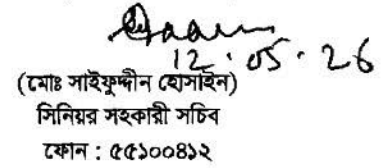 12.05.26
(মোঃ সাইফুদ্দীন হোসাইন)
সিনিয়র সহকারী সচিব
ফোন : ৫৫১০০৪১২